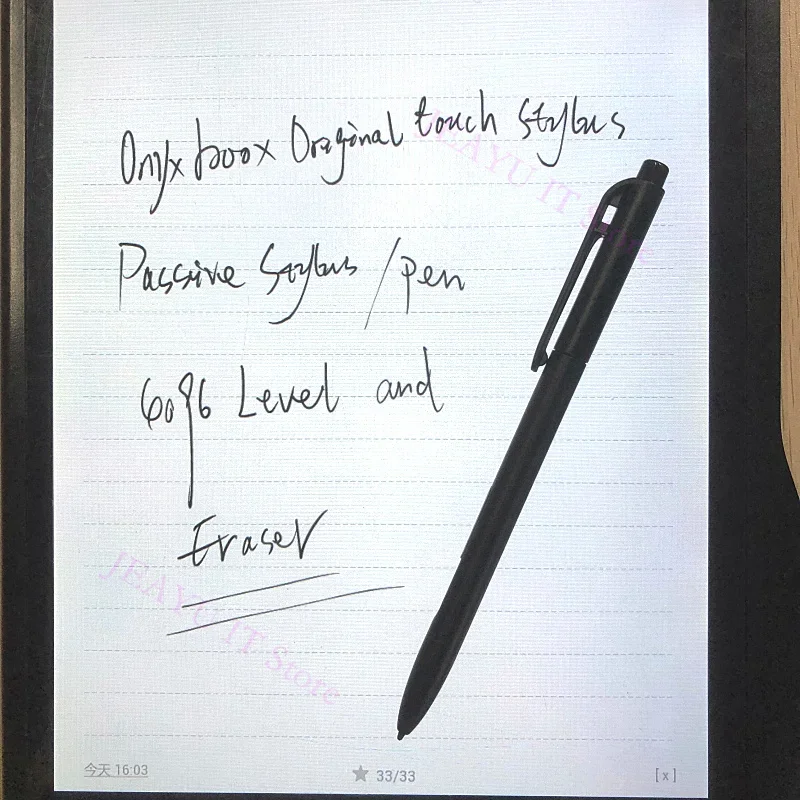 Onyx boox Original touch stylus
Passive Stylus / pen
6096 Level and
Eraser
JEAYU IT Store
JEAYU IT Store
今天 16:03
33/33
[x]